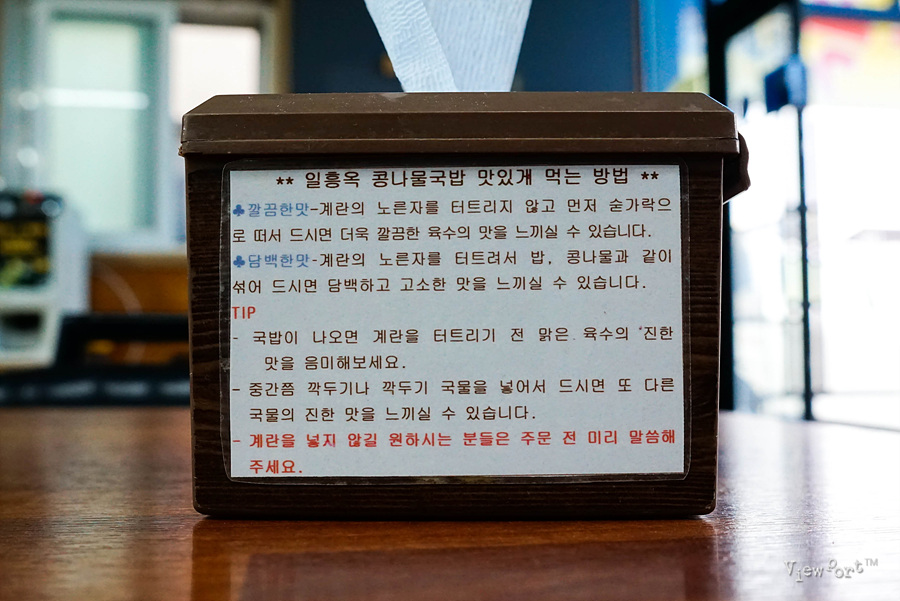 ** 일흥옥 콩나물국밥 맛있개 먹는 방법 **
♣깔끔한맛-계란의 노른자를 터트리지 않고 먼저 숟가락으
로 떠서 드시면 더욱 깔끔한 육수의 맛을 느끼실 수 있습니다.
♣담백한맛-계란의 노른자를 터트려서 밥, 콩나물과 같이
섞어 드시면 담백하고 고소한 맛을 느끼실 수 있습니다.
TIP
- 국밥이 나오면 계란을 터트리기 전 맑은 육수의 진한
맛을 음미해보세요.
- 중간쯤 깍두기나 깍두기 국물을 넣어서 드시면 또 다른
국물의 진한 맛을 느끼실 수 있습니다.
- 계란을 넣지 않길 원하시는 분들은 주문 전 미리 말씀해
주세요.
ViewPort™